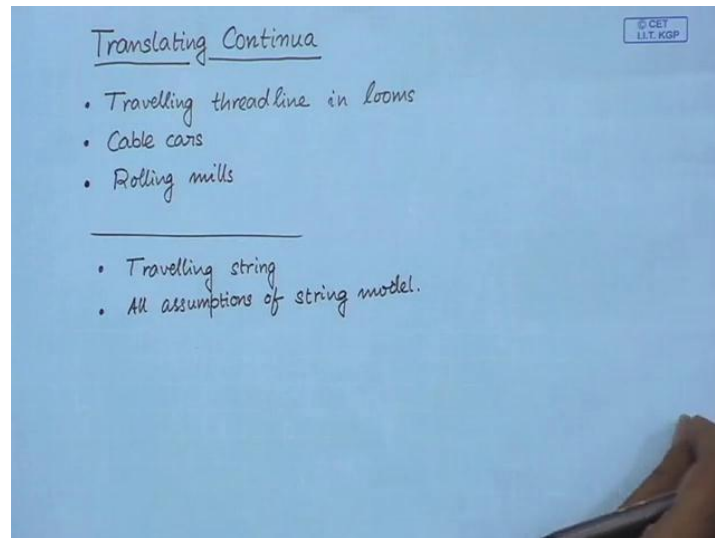 Translating Continua
© CET
I.I.T. KGP
• Travelling threadline in looms
• Cable cars
• Rolling mills
• Travelling string
• All assumptions of string model.